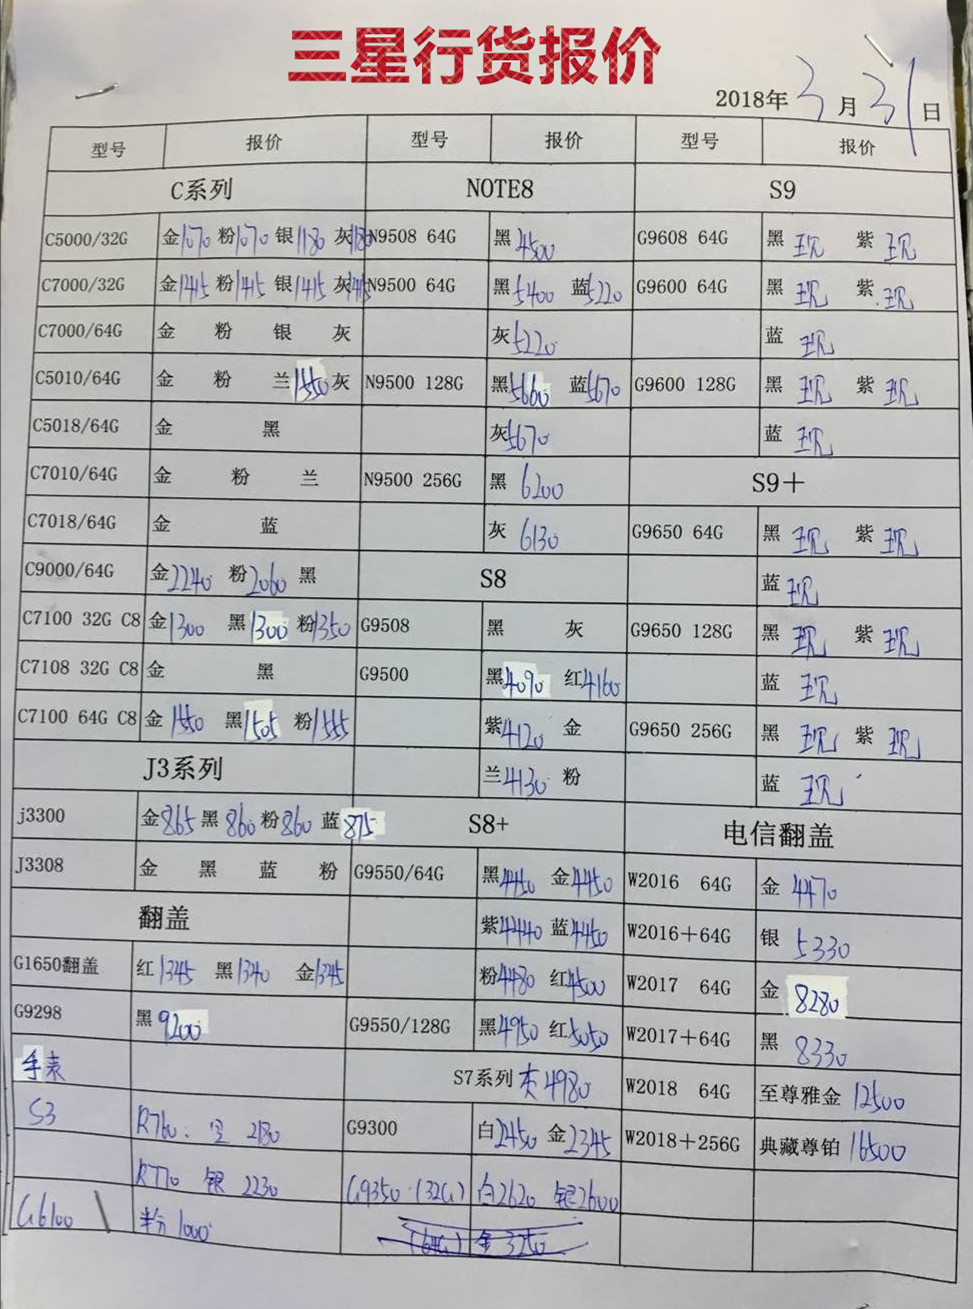 三星行货报价
2018年3月31日
型号 报价 型号 报价 型号 报价
C系列 NOTE8 S9
C5000/32G 金1070 粉1070 银1180 灰1180 N9508 64G 黑4500 G9608 64G 黑现 紫现
C7000/32G 金1415 粉1415 银1415 灰1415 N9500 64G 黑5400 蓝5220 G9600 64G 黑现 紫现
C7000/64G 金 粉 银 灰 灰5220 蓝现
C5010/64G 金 粉 兰1350 灰 N9500 128G 黑5660 蓝5670 G9600 128G 黑现 紫现
C5018/64G 金 黑 灰5670 蓝现
C7010/64G 金 粉 兰 N9500 256G 黑6200 S9＋
C7018/64G 金 蓝 灰6130 G9650 64G 黑现 紫现
C9000/64G 金2240 粉2060 黑 S8 蓝现
C7100 32G C8 金1300 黑1300 粉1350 G9508 黑 灰 G9650 128G 黑现 紫现
C7108 32G C8 金 黑 G9500 黑4090 红4160 蓝现
C7100 64G C8 金1550 黑1505 粉1555 紫4120 金 G9650 256G 黑现 紫现
J3系列 兰4130 粉 蓝现
j3300 金865 黑860 粉860 蓝875 S8+ 电信翻盖
J3308 金 黑 蓝 粉 G9550/64G 黑4450 金4450 W2016 64G 金4470
翻盖 紫4440 蓝4450 W2016＋64G 银5330
G1650翻盖 红1345 黑1340 金1345 粉4480 红4500 W2017 64G 金8280
G9298 黑9200 G9550/128G 黑4950 红5050 W2017＋64G 黑8330
手表 S7系列 4980 W2018 64G 至尊雅金12500
S3 R760 2180 G9300 白2450 金2345 W2018＋256G 典藏尊铂16500
R770 银 2230 G9350(32G) 白2620 银2600
G6100 粉1000 (64G) 金3250